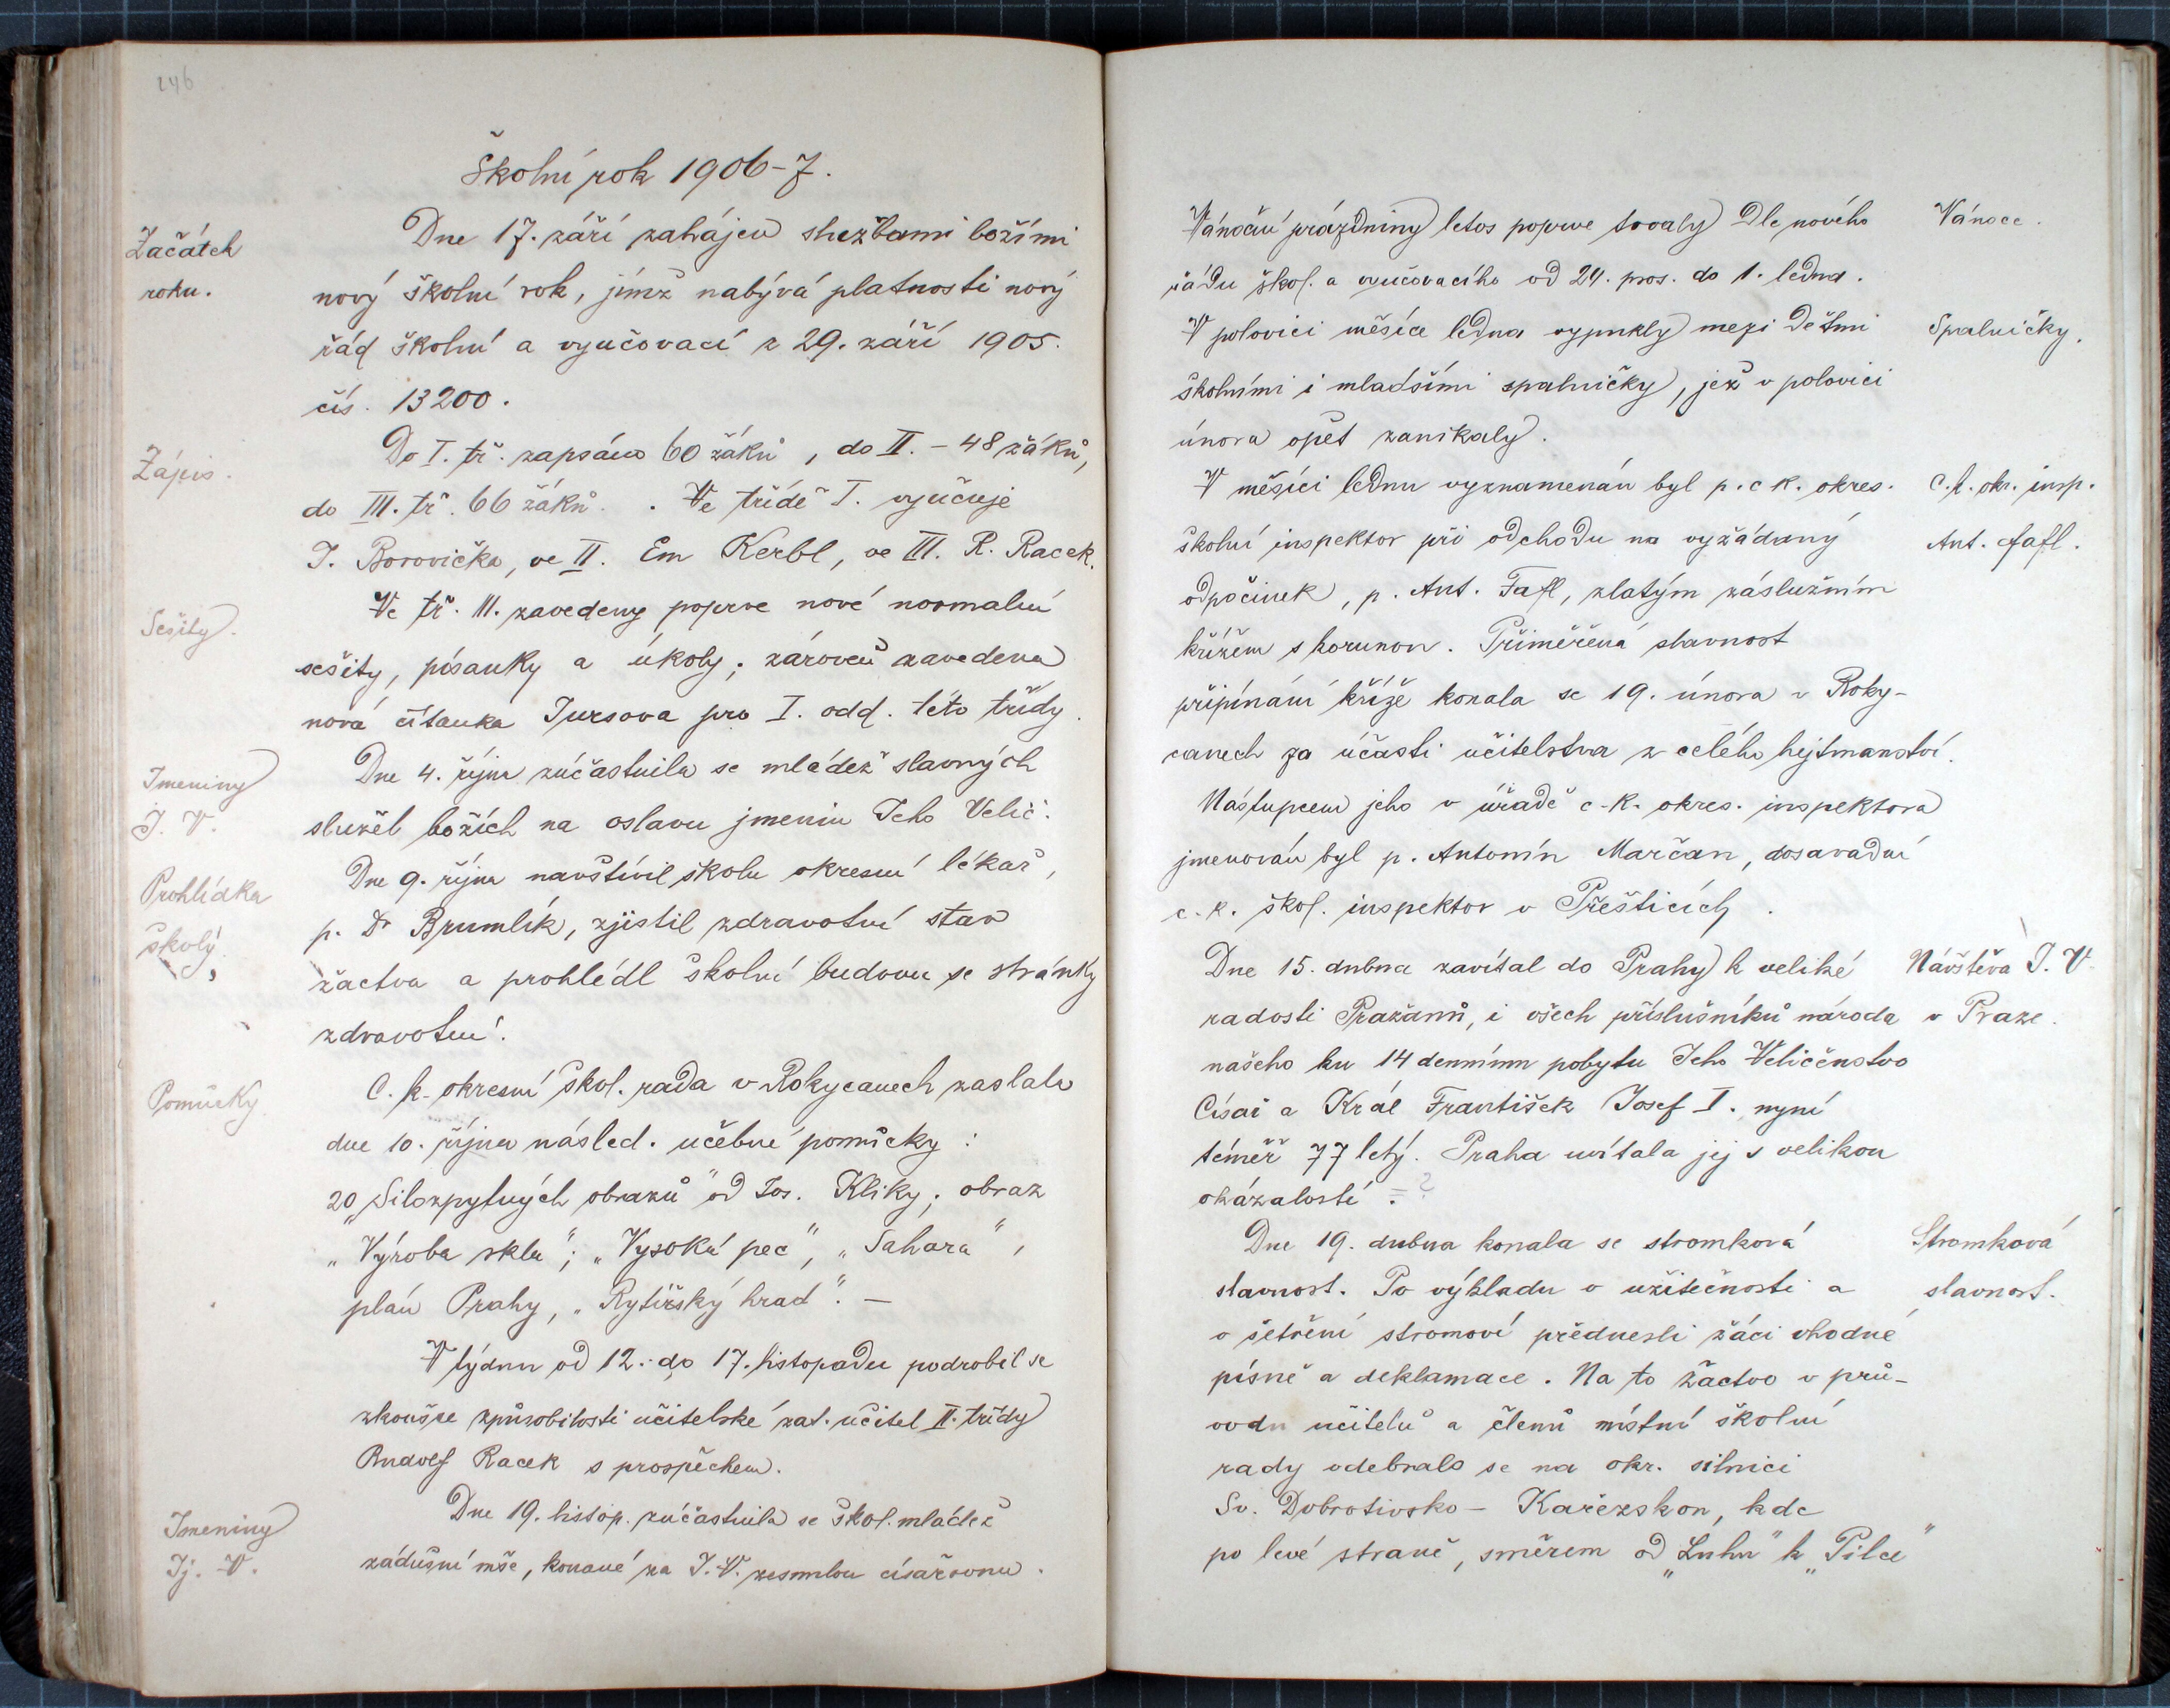 246
Školní rok 1906-7.
Začátek
roku.
Dne 17. září zahájen službami božími
nový školní rok, jímž nabývá platnosti nový
řád školní a vyučovací z 29. září 1905.
čís. 13200.
Zápis.
Do I. tř. zapsáno 60 žáků, do II. – 48 žáků,
do III. tř. 66 žáků. . Ve třídě I. vyučuje
J. Borovička, ve II. Em Kerbl, ve III. R. Racek.
Sešity.
Ve tř. II. zavedeny poprve nové normalní
sešity, písanky a úkoly; zároveň zavedena
nová čítanka Jursova pro I. odd. této třídy.
Jmeniny
J. V.
Dne 4. října zúčastnila se mládež slavných
služeb božích na oslavu jmenin Jeho Velič.
Prohlídka
školy.
Dne 9. října navštívil školu okresní lékař,
p. Dr Brumlík, zjistil zdravotní stav
žactva a prohlédl školní budovu se stránky
zdravotní.
Pomůcky
C. k. okresní škol. rada v Rokycanech zaslala
dne 10. října násled. učebné pomůcky:
20 „Silozpytných obrazů" od Jos. Kliky; obraz
„Výroba skla"; „Vysoká pec", „Sahara",
plán Prahy, „Rytířský hrad". —
V týdnu od 12. do 17. listopadu podrobil se
zkoušce způsobilosti učitelské zat. učitel II. třídy
Rudolf Racek s prospěchem.
Jmeniny
Jj. V.
Dne 19. listop. zúčastnila se škol. mládež
zádušní mše, konané za J. V. zesnulou císařovnu.
Vánoční prázdniny letos poprve trvaly Dle nového
řádu škol. a vyučovacího od 24. pros. do 1. ledna.
Vánoce.
V polovici měsíce ledna vypukly mezi dětmi
školními i mladšími spalničky, jež v polovici
února opět zanikaly.
Spalničky.
V měsíci lednu vyznamenán byl p. c k. okres.
školní inspektor při odchodu na vyžádaný
odpočinek, p. Ant. Tafl, zlatým záslužním
křížem s korunou. Přiměřená slavnost
připínání kříže konala se 19. února v Roky-
canech za účasti učitelstva z celého hejtmanství.
C. k. okr. insp.
Ant. Tafl.
Nástupcem jeho v úřadě c. k. okres. inspektora
jmenován byl p. Antonín Marčan, dosavadní
c. k. škol. inspektor v Přešticích.
Dne 15. dubna zavítal do Prahy k veliké
radosti Pražanů, i všech příslušníků národa
našeho ku 14 dennímu pobytu Jeho Veličenstvo
Císař a Král František Josef I. nyní
téměř 77 letý. Praha uvítala jej s velikou
okázalostí. = ?
Návštěva J. V.
v Praze.
Dne 19. dubna konala se stromková
slavnost. Po výkladu o užitečnosti a
o šetření stromoví přednesli žáci vhodné
písně a deklamace. Na to žactvo v prů-
vodu učitelů a členů místní školní
rady odebralo se na okr. silnici
Sv. Dobrotivsko – Kařezskou, kde
po levé straně, směrem od „Luhu" k „Pilce"
Stromková
slavnost.